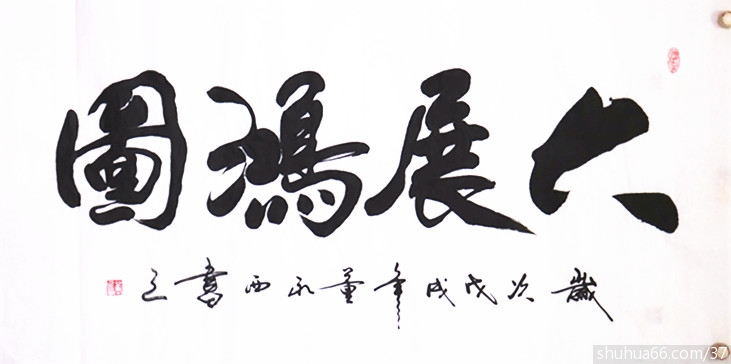 大展鴻圖
歲次戊戌年董永西書之
shuhua66.com/37